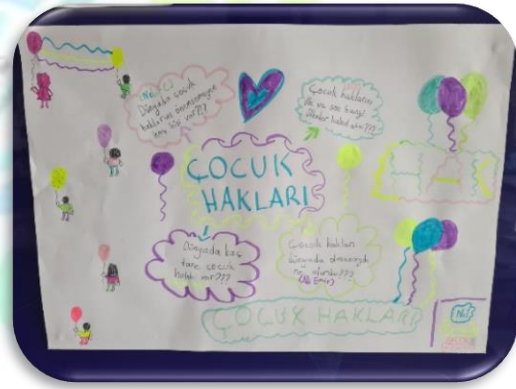 Dünyada çocuk
haklarını
var???
Çocuk haklarını
ilk ve son hangi
ülkeler kabul etti???
ÇOCUK
HAKLARI
Dünyada kaç
tane çocuk
hakkı var???
Çocuk hakları
dünyada olmasaydı
ne olurdu???
ÇOCUK HAKLARI